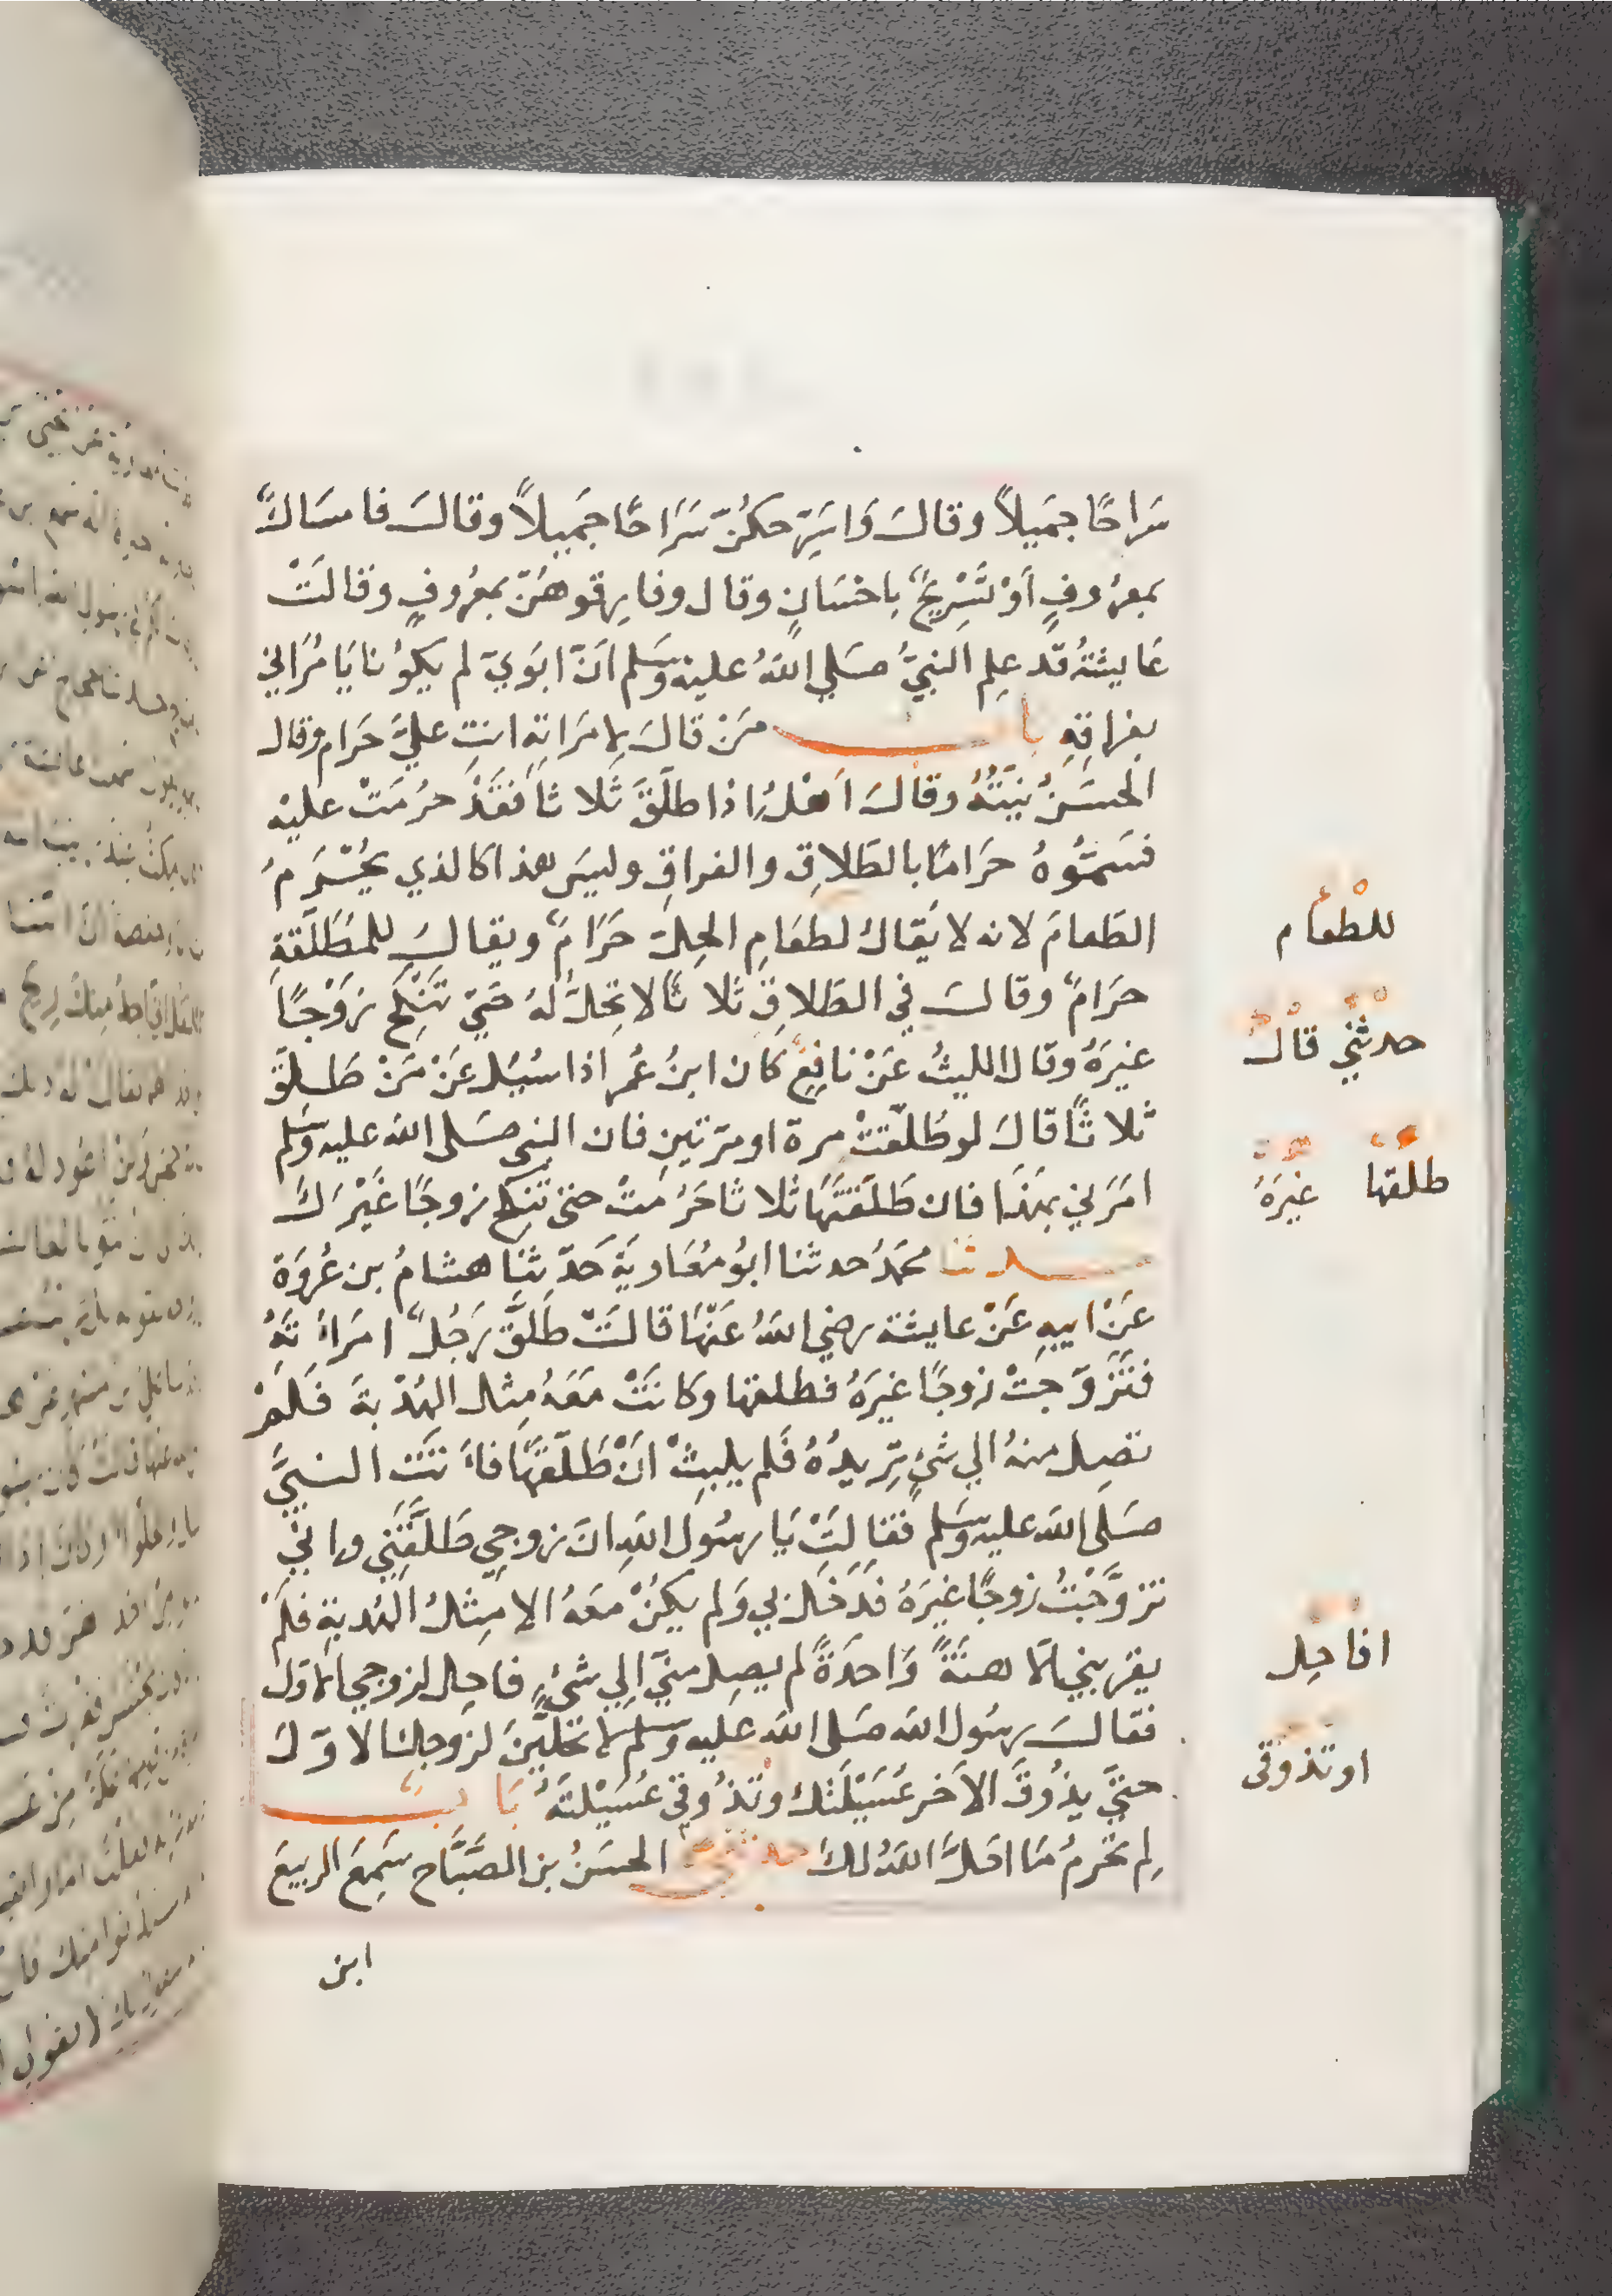 سَراحًا جمَيلاً وقالَ وَاسَرِّحكُنّ سَرَاحًا جَمَيلاً وقالَ فامسَاكٌ
بمعرُوفٍ اَوْ تَسْرِيحٌ بِاحْسَانٍ وقال وفارِقوهُنّ بمعْرُوفٍ وقالَتْ
عَايشةُ قَد عِلم النبيُّ صَلي اللهُ عليْهِ وَسَلم اَنّ ابَوَيّ لم يكوُنا يَامُرَاني
بفراقِهِ بابــــــ مَنْ قالَ لِامرَاتِهِ انتِ عليَّ حَرام وقال
الحسَنُ نِيّتُهُ وقالَ اَهْلُ اذا طلَّقَ ثَلاثاً فَقَدْ حرُمَتْ عليْهِ
فسَمَّوُهُ حرَامًا بالطَلاقِ والفراقِ وليسَ هذا كالذي يُحَّرمُ
الطَعامَ لانه لا يُقالُ لطعَامِ الحِلِّ حَرَامٌ ويقالُ للمُطَلَّقةِ
حرَامٌ وقالَ في الطَلاقِ ثلاثًا لا تحِلُّ لهُ حَتيّ تَنْكِحَ زَوْجًا
غيرَهُ وقال الليثُ عَنْ نافِعٍ كان ابنُ عُمر اذا سُيُل عَنْ مَنْ طَلّقَ
ثلاثاً قالَ لو طَلّقتْ مرة او مَرّتينِ فان النبي صَلى الله عليه وسَلم
امَرَني بِهَذَا فان طَلّقتَهَا ثلاثا حَرُمَتْ حتى تنكِحَ زوجًا غَيْرَكَ
حــدثنا محَمَدُ حدثنا ابوُ مُعَاوِيَةَ حَدّثنِا هشامُ بن عُروَة
عَنْ ابيهِ عَنْ عايشة رضي اللهُ عَنْهَا قالَتْ طلّقَ رَجُلٌ امرَاَتَهُ
فتَزَوّجَتْ زوجًا غيرَهُ فطلقها وكانَتْ مَعَهُ مِثل الهُدْبةَ فَلَمْ
تصِل منهُ الي شَيْءٍ تُرِيدُهُ فَلم يلبِثْ اَنْ طَلّقهَا فاَتَت النبيَّ
صَلى الله عليه وسَلم فقالتْ يَا رسُول اللهِ انّ زوجِي طَلّقَنِي واني
تزوَّجْتُ زوجًا غيَرَهُ فدَخَلَ بي وَلم يكُنْ معَهُ الا مِثلُ الهُدبةِ فلم
يقربني الا هنَةً وَاحدَةً لم يصِل منيّ اِلي شَيْءٍ فاحِل لزوجي الاوّل
فقالَ رسُول الله صَلى الله عليه وسلم لا تحلّينَ لزوجك الاوّل
حتّيَ يذُوقَ الاَخر عُسَيْلتَك وتذُوقي عُسَيْلتَهُ بَابٌــــ
لِم تحَرمُ مَا اَحَلَّ اللهُ لكَ حدثني الحسَنُ بن الصّبَّاح سَمِعَ الربيعَ
ابن
للطعام
حدثني قال
طلقها غيرَهُ
افاحِل
او تذوقى